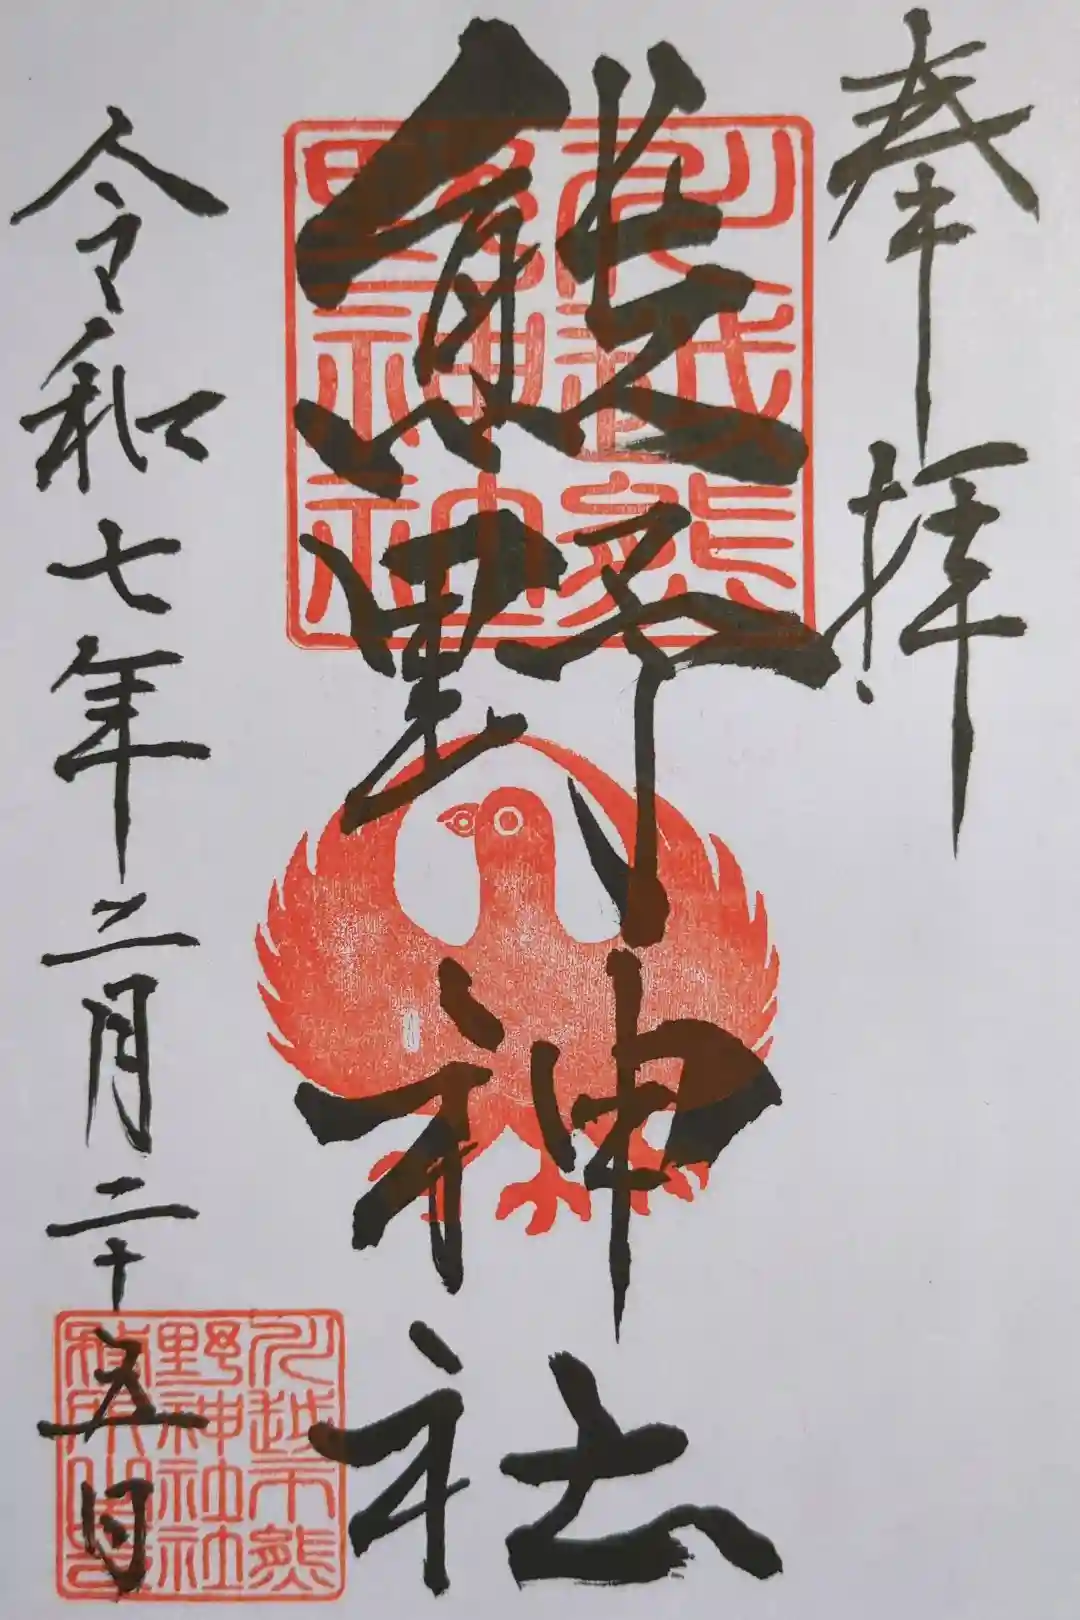 奉拝
川越熊
野神社
熊野神社
令和七年二月二十五日
川越市熊
野神社社